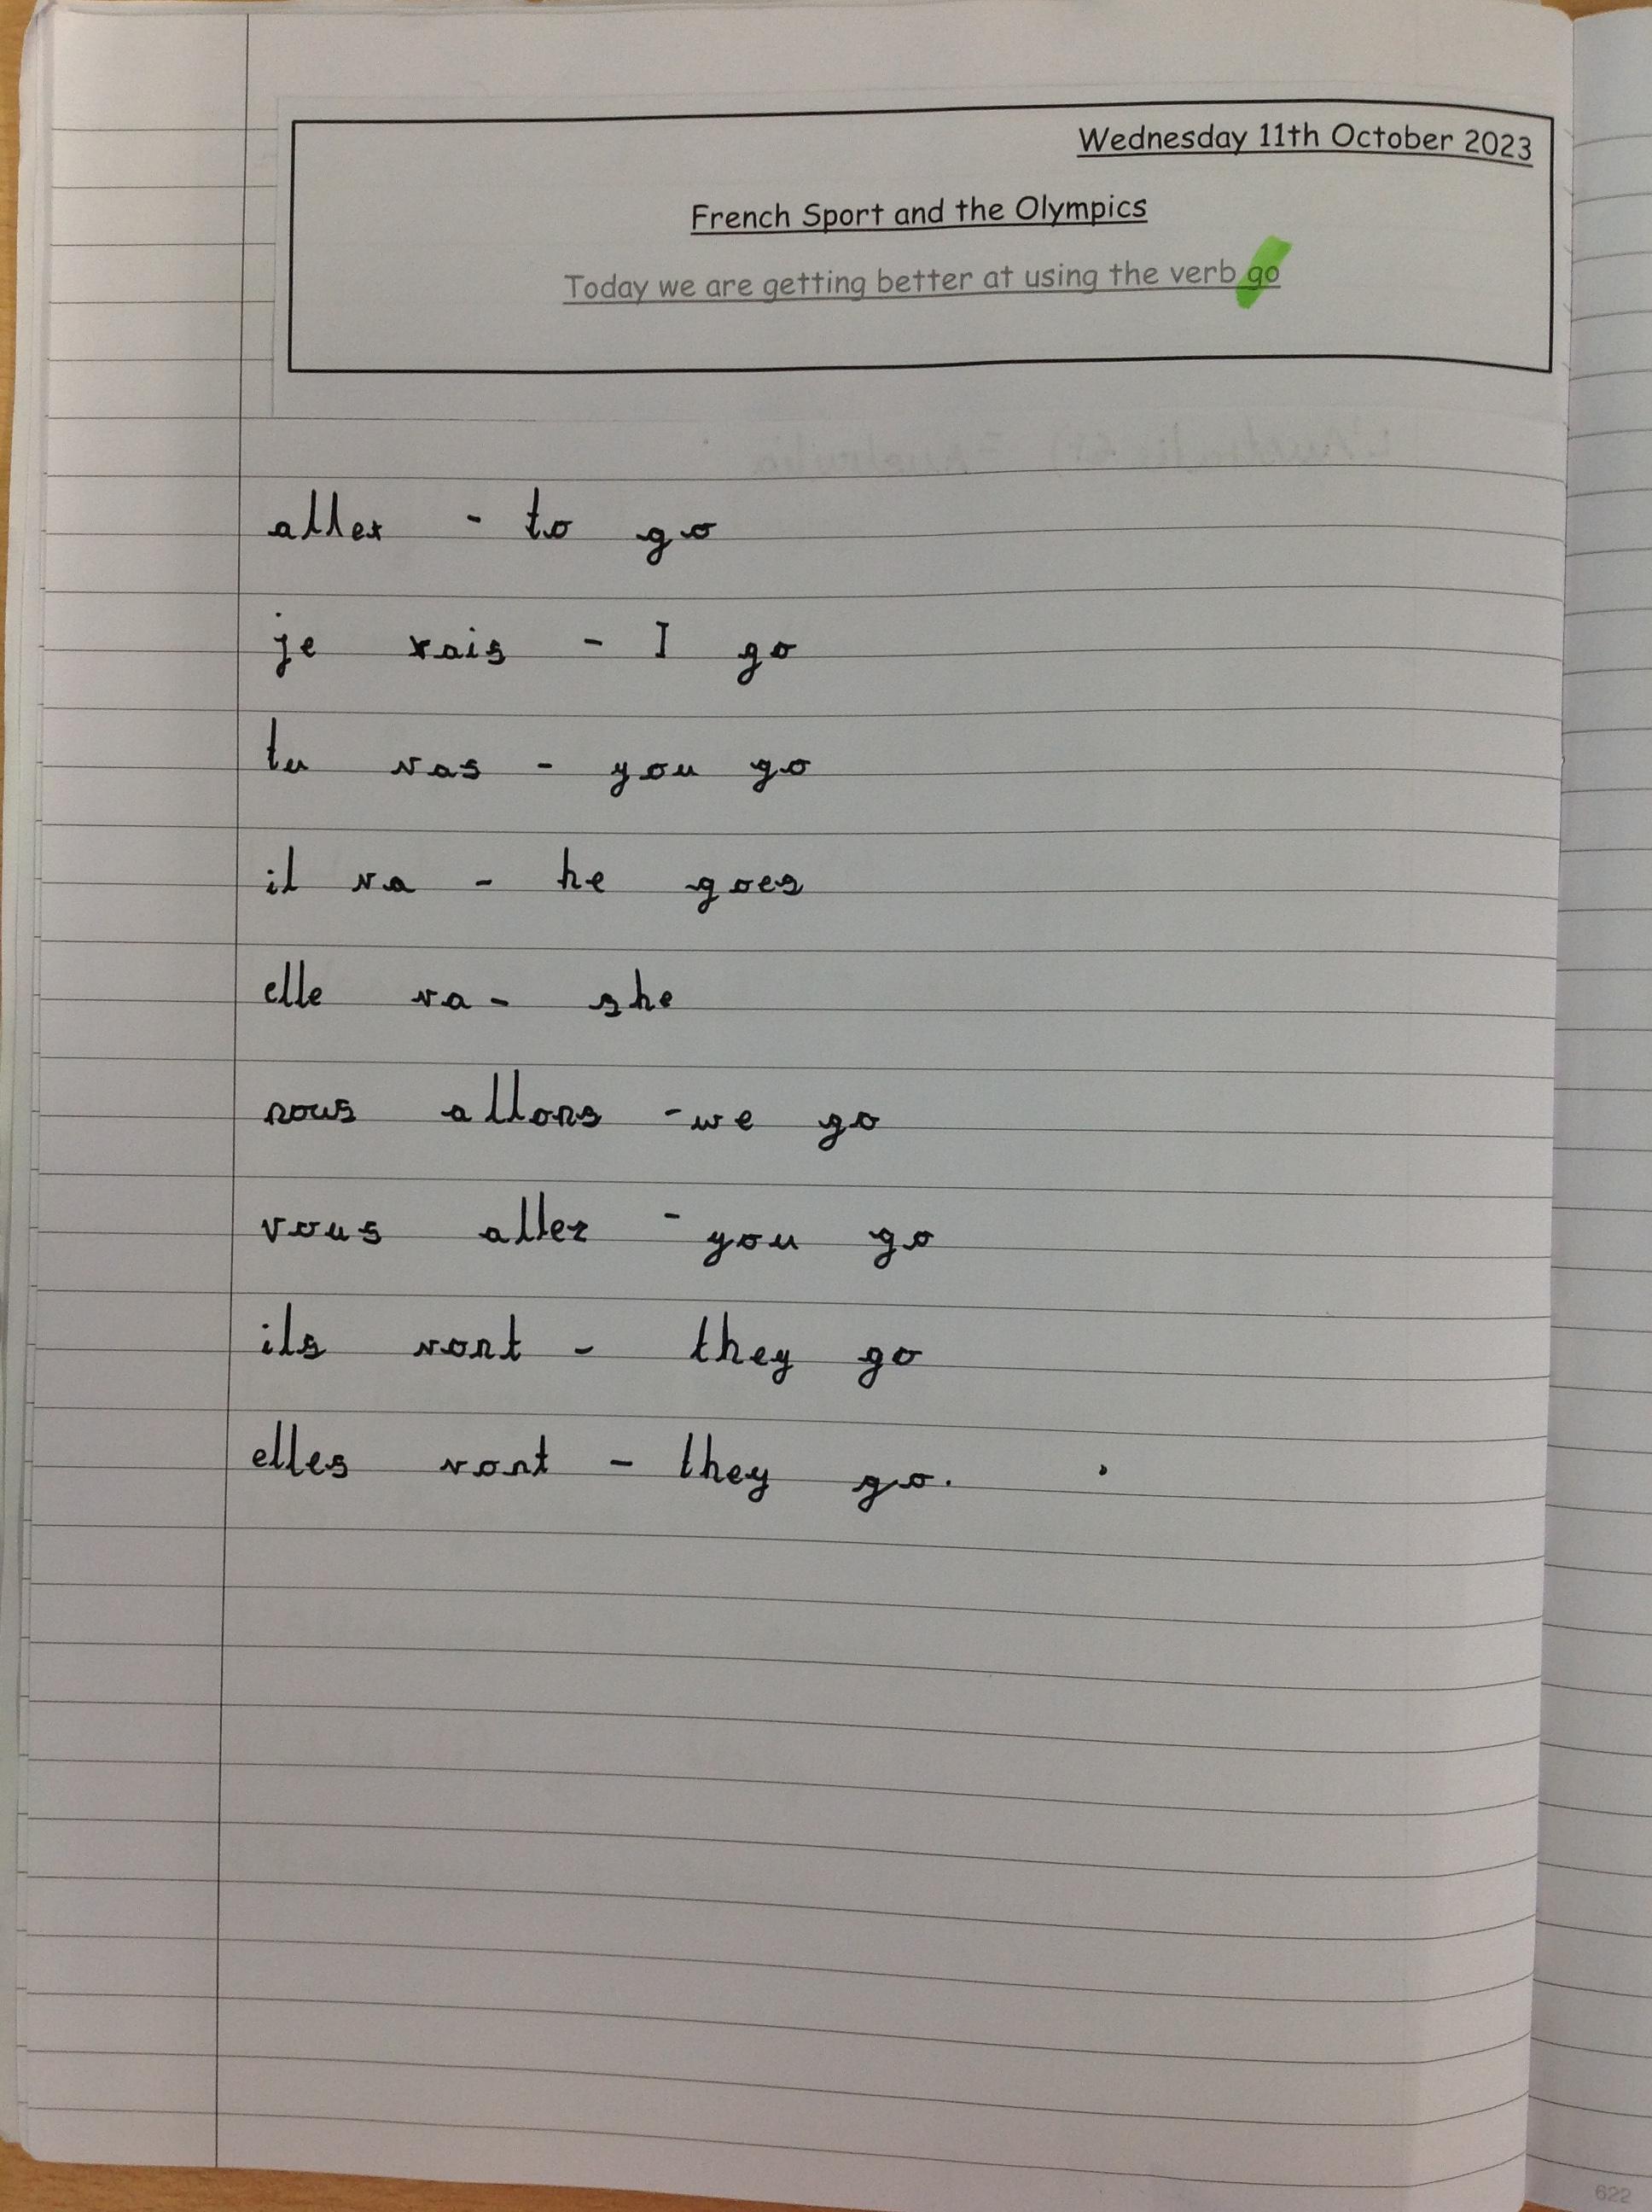 Wednesday 11th October 2023
French Sport and the Olympics
Today we are getting better at using the verb go
aller - to go
je vais - I go
tu vas - you go
il va - he goes
elle va - she
nous allons - we go
vous allez - you go
ils vont - they go
elles vont - they go.
622